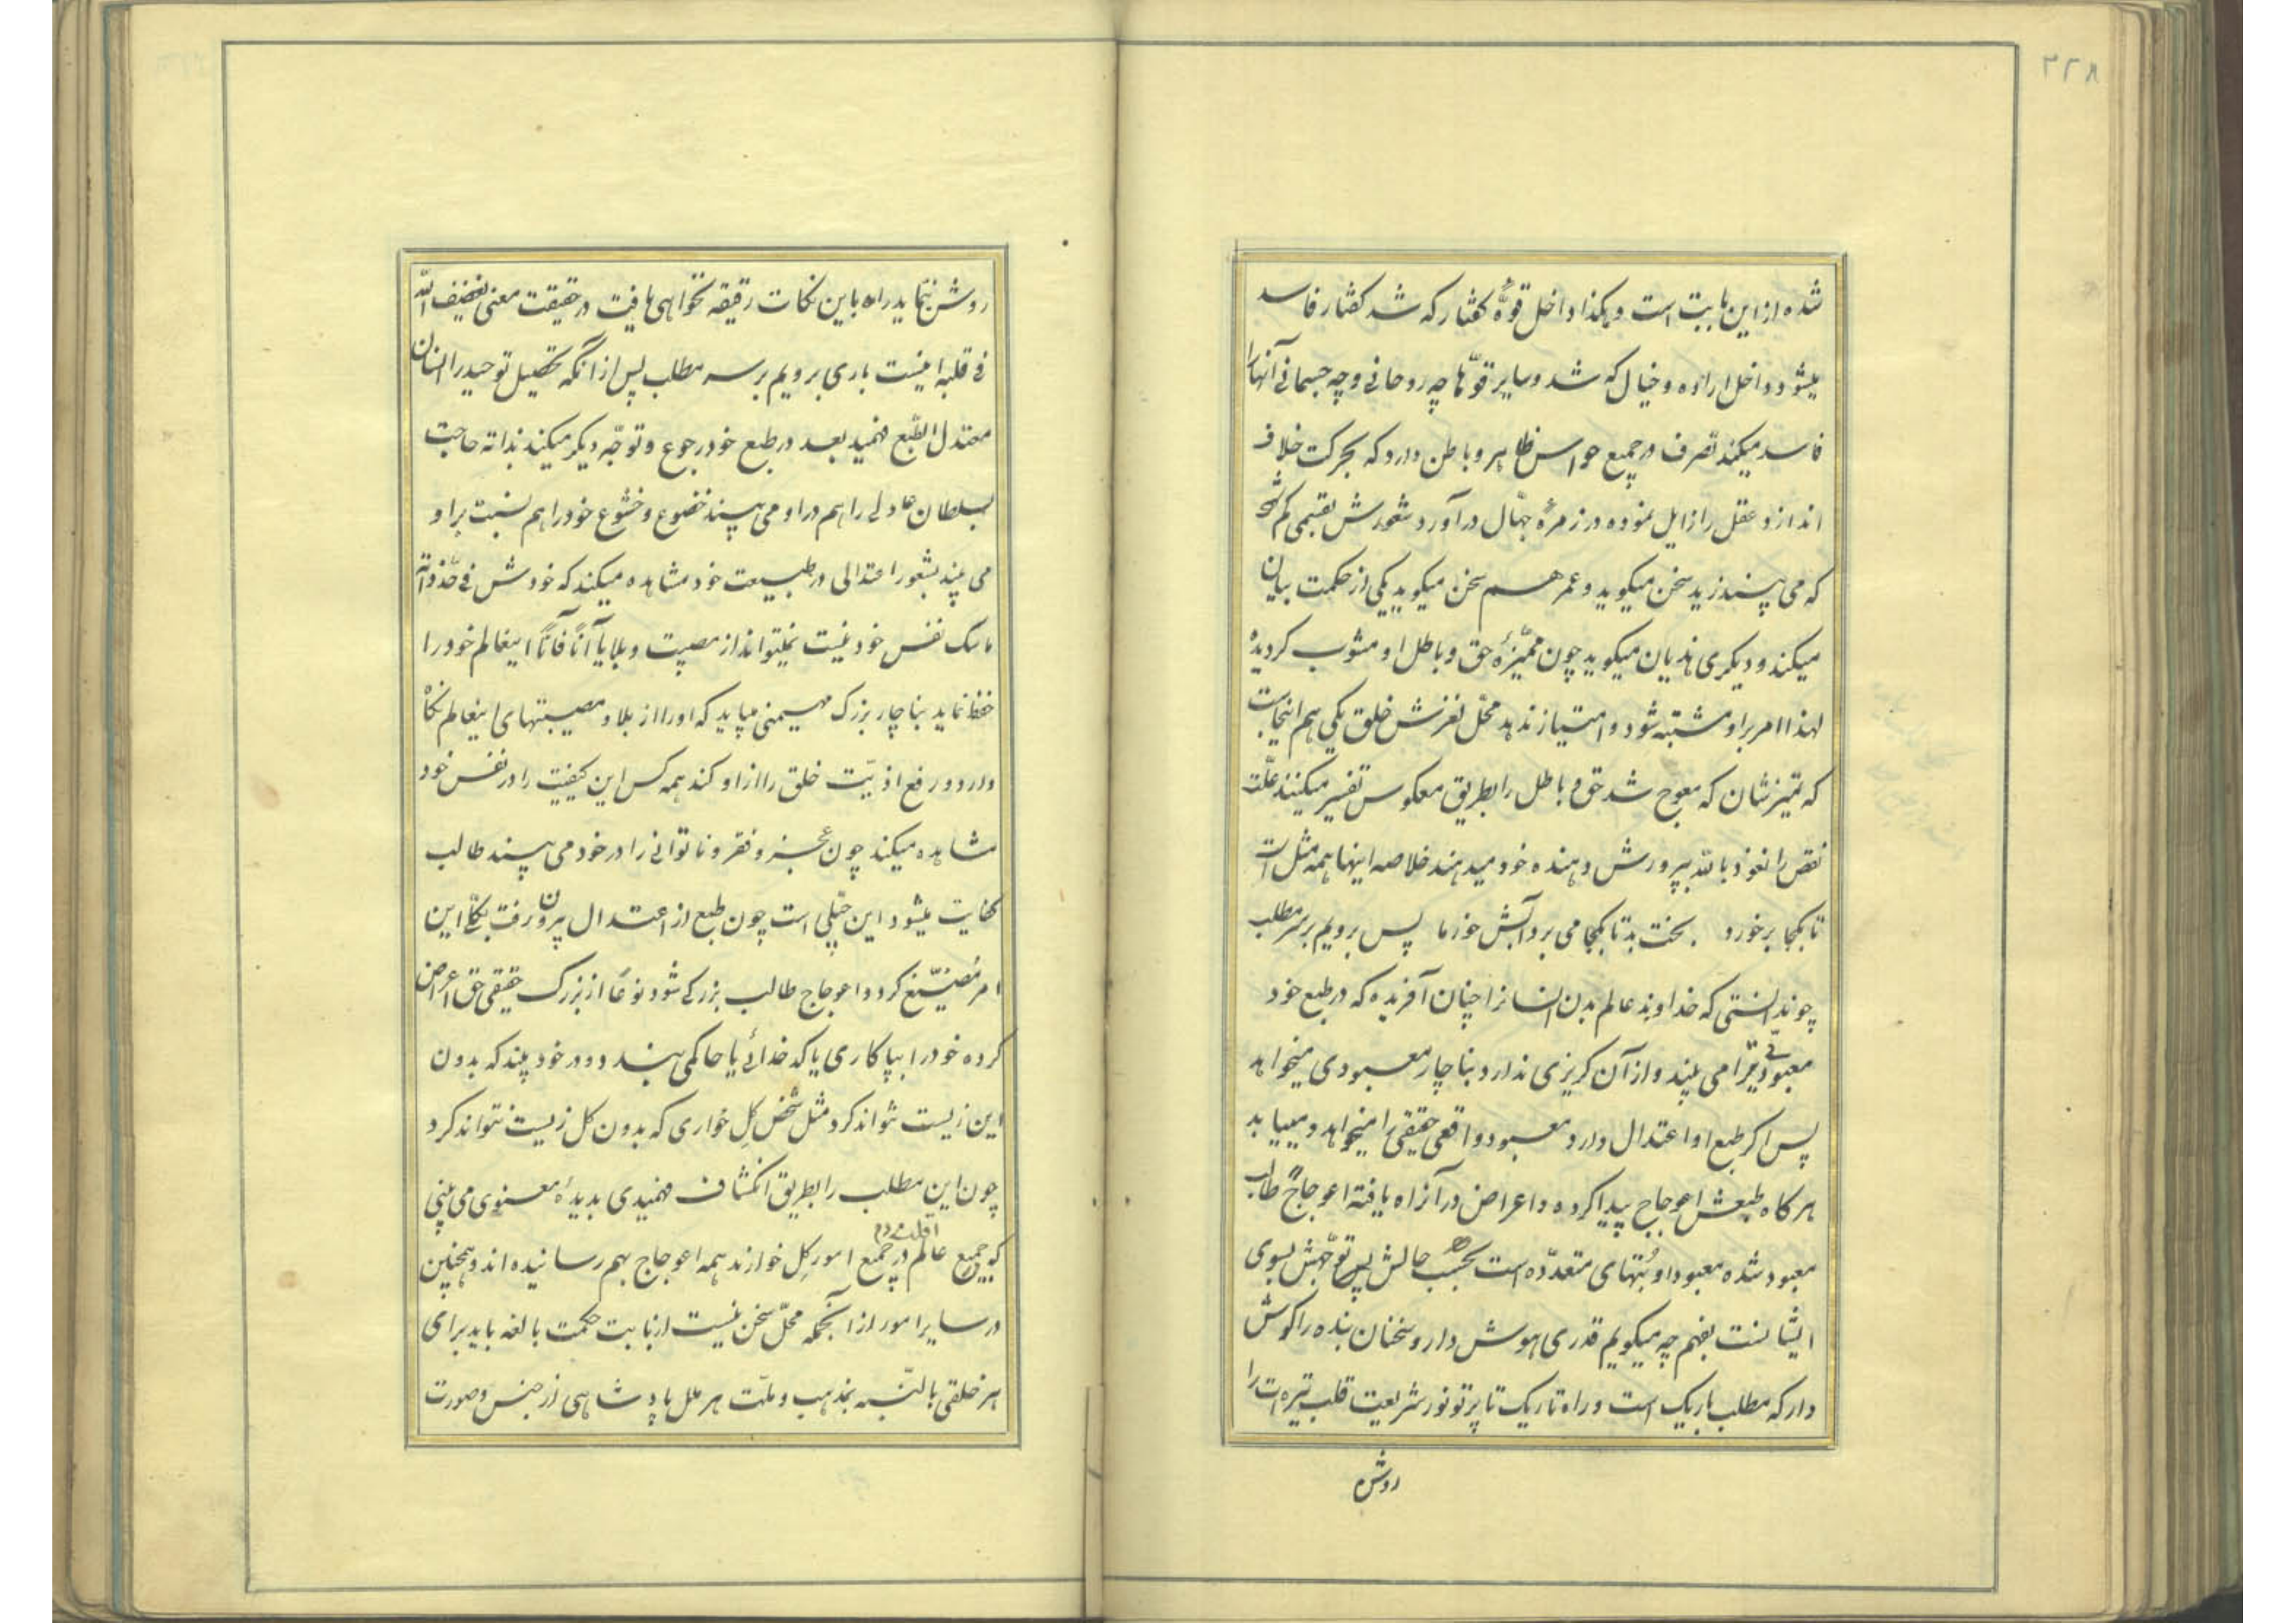 ۲۲۸
شده از این بابت است و هکذا داخل قوهٔ گفتار که شد گفتار فاسد
میشود و داخل اراده و خیال که شد و سایر قوّها چه روحانی و چه جسمانی آنها را
فاسد میکند تصرف در جمیع حواس ظاهر و باطن دارد که بحرکت خلاف
اندازد و عقل را زایل نموده در زمرهٔ جهّال درآورد شعورش بقسمی کم شود
که می بیند زید سخن میگوید و عمر هم سخن میگوید یکی از حکمت بیان
میکند و دیگری هذیان میگوید چون ممیّزهٔ حق و باطل او مشوب گردیده
لهذا امر بر او مشتبه شود و امتیاز ندهد محلّ لغزش خلق یکی هم اینجاست
که تمیزشان که معوج شد حق و باطل را بطریق معکوس تفسیر میکنند علّت
نقص را نعوذ بالله بپرورش دهنده خود میدهند خلاصه اینها همه مثل است
تا بکجا برخورد . بخت بد تا بکجا می برد آبش خور ما پس برویم بر سر مطلب
چون دانستی که خداوند عالم بدن انسانرا چنان آفریده که در طبع خود
معبودیّتی را می بیند و از آن گریزی ندارد بناچار معبودی میخواهد
پس اگر طبع او اعتدال دارد معبود واقعی حقیقی را میخواهد و مییابد
هرگاه طبعش اعوجاج پیدا کرده و اعراض در آن راه یافته اعوجاجاً طالب
معبود شده معبود او بُتهای متعدّده است بحسب حالش پس توجّهش بسوی
ایشانست بفهم چه میگویم قدری هوش دار و سخنان بنده را گوش
دار که مطلب باریک است و راه تاریک تا پرتو نور شریعت قلب تیره ات را
روشن
روشن ننماید راه باین نکات رقیقه نخواهی یافت در حقیقت معنی الله
فی قلبه اینست باری برویم بر سر مطلب پس از آنکه تحصیل توحید را انسان
معتدل الطّبع فهمید بعد در طبع خود رجوع و توجّه دیگر میکند بذاته حاجت
بسلطان عادلی را هم در او می بیند خضوع و خشوع خود را هم نسبت براو
می بیند بشعور اعتدالی در طبیعت خود مشاهده میکند که خودش فی حدّ ذاته
مالک نفس خود نیست نمیتواند از مصیبت و بلایا آناً فآناً اینعالم خود را
حفظ نماید بناچار بزرگ مهیمنی میباید که او را از بلا و مصیبتهای اینعالم نگاه
دارد و رفع اذیّت خلق را از او کند همه کس این کیفیت را در نفس خود
مشاهده میکند چون عجز و فقر و ناتوانی را در خود می بیند طالب
کفایت میشود این جبلّی است چون طبع از اعتدال بیرون رفت بکلّی این
امر مُضیّع گردد و اعوجاج طالب بزرگی شود نوعاً از بزرگ حقیقی حق اعراض
کرده خود را بپاکاری یا کدخدائی یا حاکمی بندد و در خود بیند که بدون
این زیست نتواند کرد مثل شخص گِل خواری که بدون گل زیست نتواند کرد
چون این مطلب را بطریق انکشاف فهمیدی بدیدهٔ معنوی می بینی
که جمیع عالم در جمیع امور گِل خوارند همه اعوجاج بهم رسانیده اند و همچنین
در سایر امور از آنجمله محلّ سخن نیست از بابت حکمت بالغه باید برای
هر خلقی بالنّسبه بمذهب و ملّت هر ملل پادشاهی از جنس و صورت